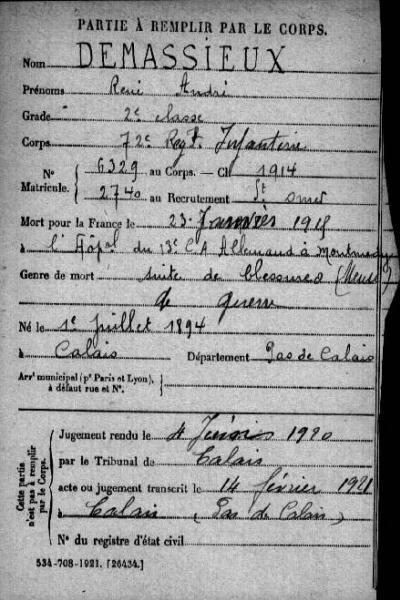 PARTIE À REMPLIR PAR LE CORPS.
Nom DEMASSIEUX
Prénoms René André
Grade 2e classe
Corps 72e Régt. Infanterie
N° Matricule. 6329 au Corps. — Cl 1914
2740 au Recrutement St. omer
Mort pour la France le 23 1915
à l'Hôpal du 13e C A Allemand à Montmedy
Genre de mort suites de blessures (Meuse)
de guerre
Né le 1e juillet 1894
à Calais Département Pas de Calais
Arrt municipal (pr Paris et Lyon),
à défaut rue et N°.
Cette partie n'est pas à remplir par le Corps.
Jugement rendu le 4 1920
par le Tribunal de Calais
acte ou jugement transcrit le 14 février 1921
à Calais (Pas de Calais)
N° du registre d'état civil
534-708-1921. [26434.]